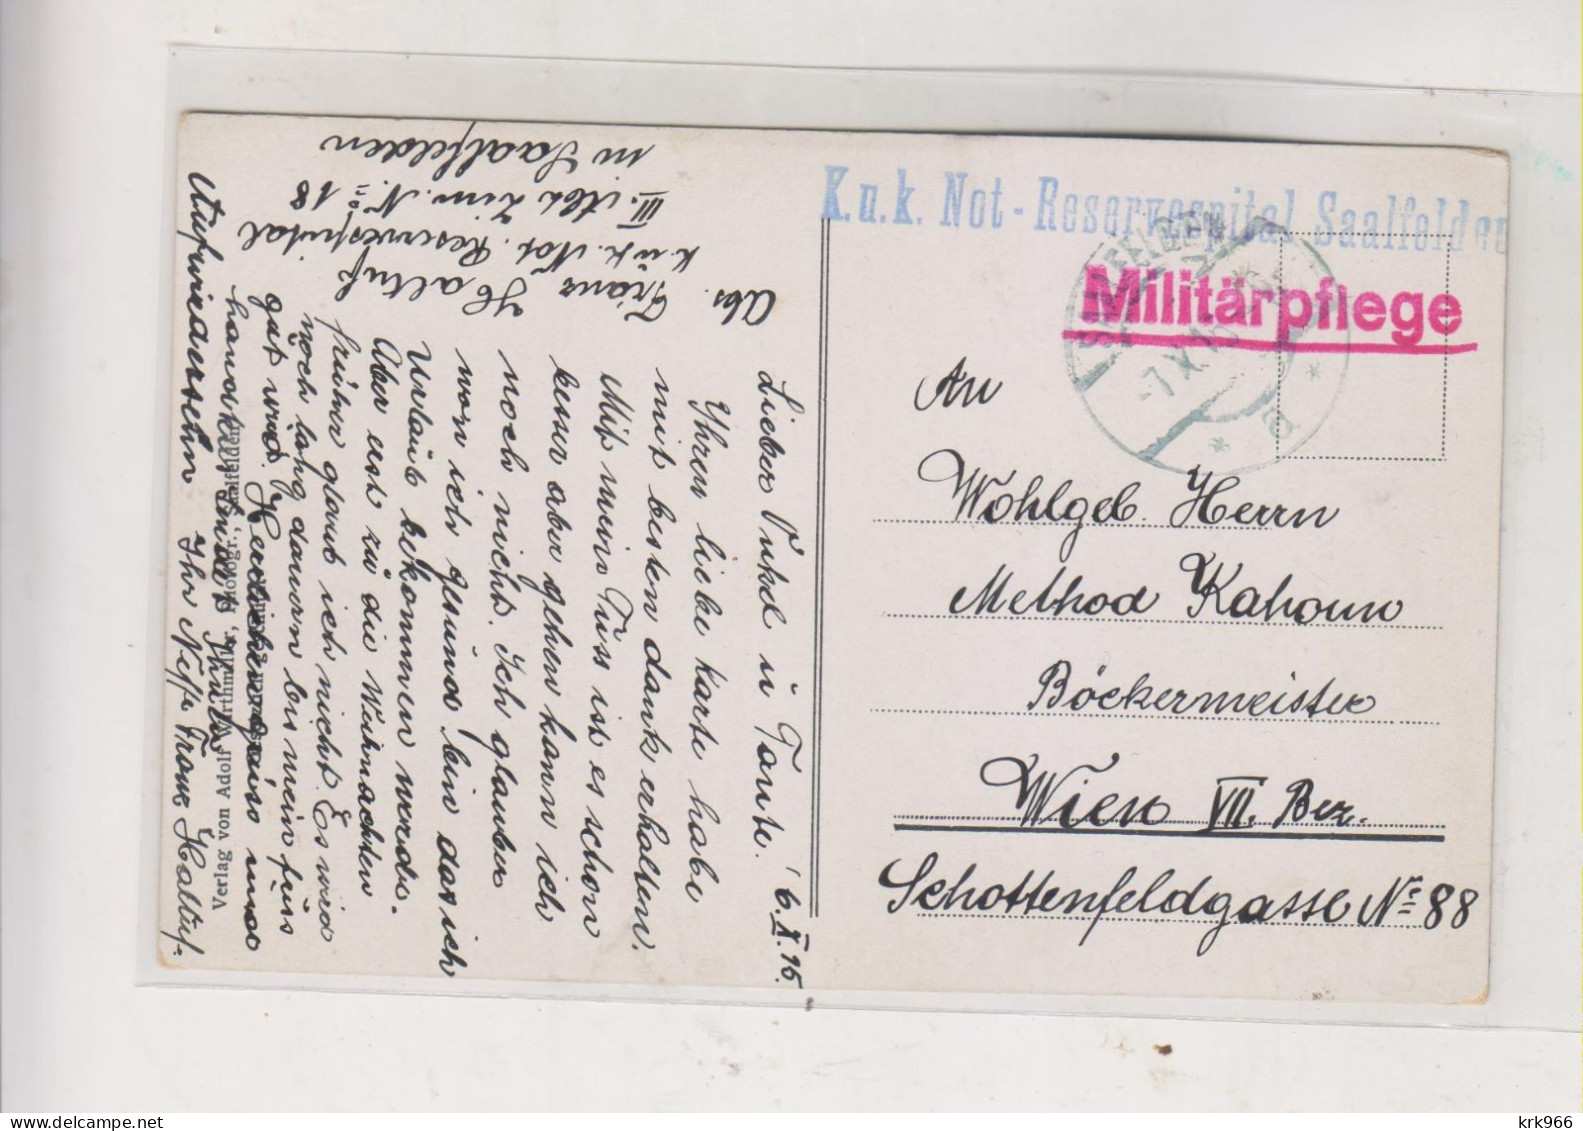 K.u.k. Not-Reservespital Saalfelden
Militärpflege
SAALFELDEN
-7.X.15
An
Wohlgeb. Herrn
Method Kahoun
Böckermeister
Wien VII. Bez.
Schottenfeldgasse No 88
Abs. Franz Haltuf
k.u.k. Not. Reservespital
III. Abt. Zim. No 18
in Saalfelden
6.X.15.
Lieber Onkel u Tante!
Ihren liebe karte habe
mit besten dank erhalten.
Mit mein Fuss ist es schon
besser aber gehen kann ich
noch nicht. Ich glauber
won ich gesund bin das ich
Urlaub bekommen werde.
Aber erst zu die Weihnachten
früher glaub ich nicht. Es wird
noch lang dauern bis mein fuss
gut wird.
Aufwiedersehn Ihr Neffe Franz Haltuf.
Verlag von Adolf Würthmüller, Photogr., Saalfelden